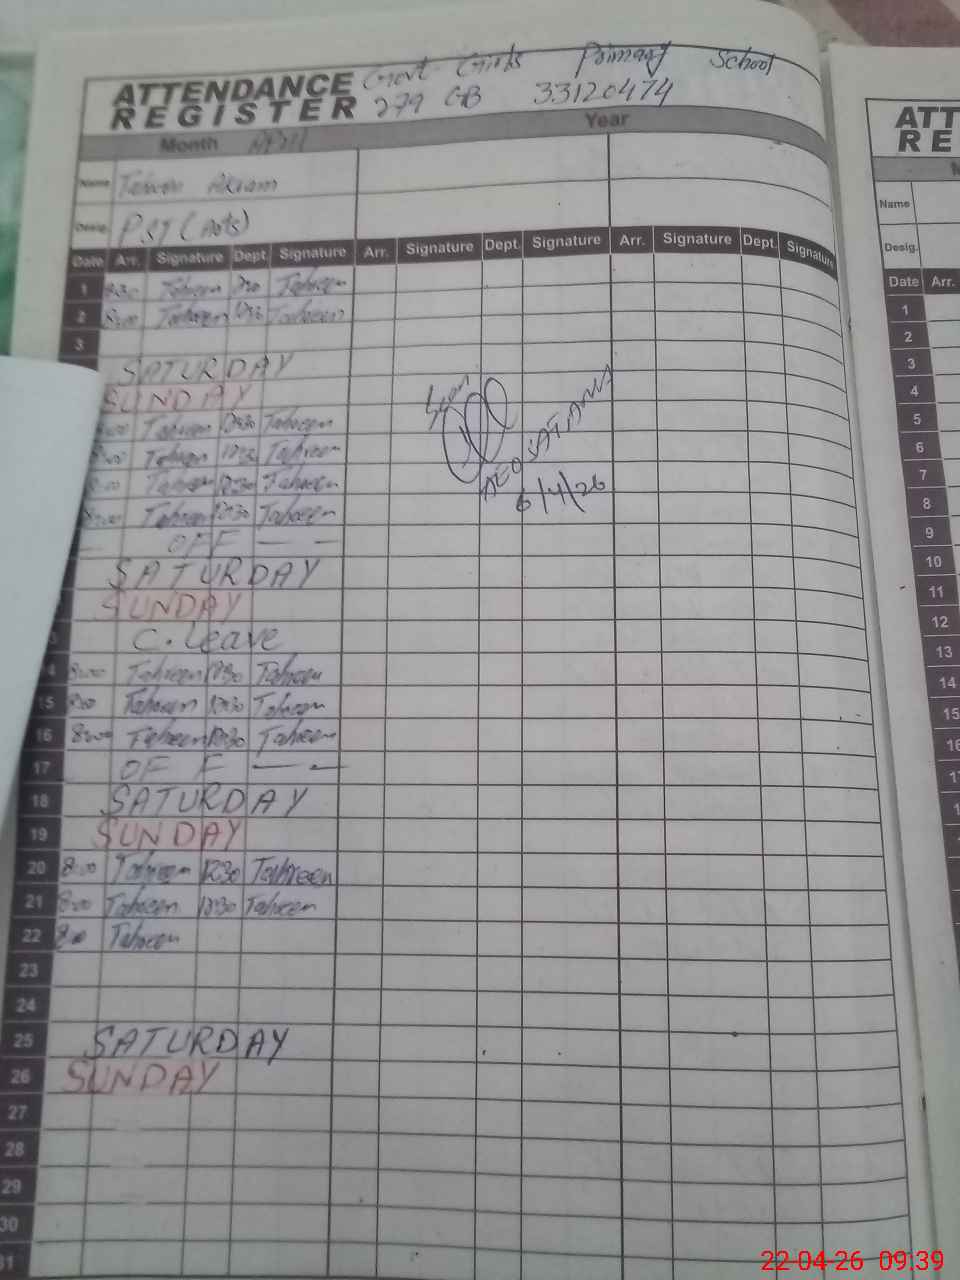 ATTENDANCE REGISTER
Govt. Girls Primary School
279 GB 33120474
Month April Year
Name Akram
Desig. PST (Arts)
Date Arr. Signature Dept. Signature Arr. Signature Dept. Signature Arr. Signature Dept. Signature
1 8:30 Tahreen Tahreen
2 8:00 Tahreen Tahreen
3
SATURDAY
SUNDAY
8:00 Tahreen 12:30 Tahreen
8:00 Tahreen 12:30 Tahreen
8:00 Tahreen 12:30 Tahreen
8:00 Tahreen 12:30 Tahreen
OFF
SATURDAY
SUNDAY
C. Leave
14 8:00 Tahreen 12:30 Tahreen
15 8:00 Tahreen 12:30 Tahreen
16 8:00 Tahreen 12:30 Tahreen
17 OFF
18 SATURDAY
19 SUNDAY
20 8:00 Tahreen 12:30 Tahreen
21 8:00 Tahreen 12:30 Tahreen
22 8:00 Tahreen
23
24
25 SATURDAY
26 SUNDAY
27
28
29
30
31
Seen
AEO SATIANA
6/4/26
ATT
RE
Name
Desig.
Date Arr.
1
2
3
4
5
6
7
8
9
10
11
12
13
14
15
16
22-04-26 09:39